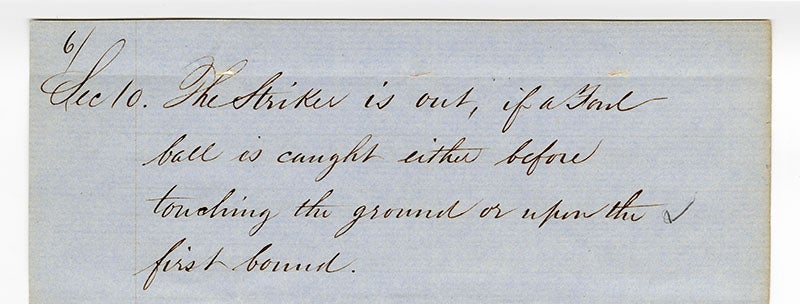 6/
Sec 10. The Striker is out, if a Foul
ball is caught either before
touching the ground or upon the ✓
first bound.